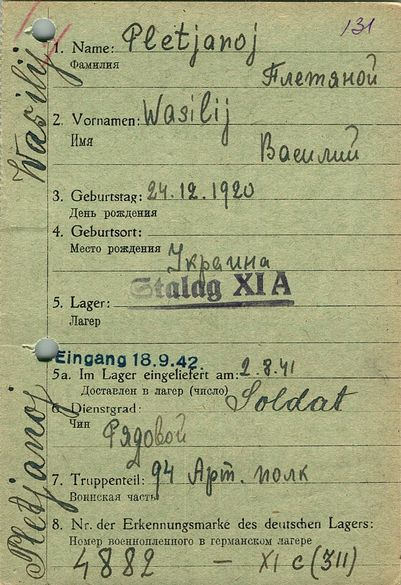 131
Wasilij
Pletjanoj
1. Name: Pletjanoj
Фамилия
Плетяной
2. Vornamen: Wasilij
Имя
Василий
3. Geburtstag: 24.12.1920
День рождения
4. Geburtsort:
Место рождения Украина
Stalag XI A
5. Lager:
Лагер
Eingang 18.9.42.
5a. Im Lager eingeliefert am: 2.8.41
Доставлен в лагер (число)
6. Dienstgrad: Soldat
Чин Рядовой
7. Truppenteil: 94 Арт. полк
Воинская часть
8. Nr. der Erkennungsmarke des deutschen Lagers:
Номер военнопленного в германском лагере
4882 — XI C (311)